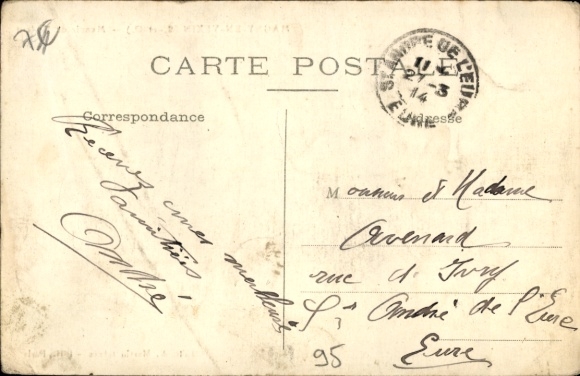 CARTE POSTALE
ST ANDRE DE L'EURE
11
21 - 3
14
EURE
Correspondance
Adresse
Recevez mes meilleures
amitiés
André
Monsieur et Madame
rue d'Ivry
St André de l'Eure
Eure
95